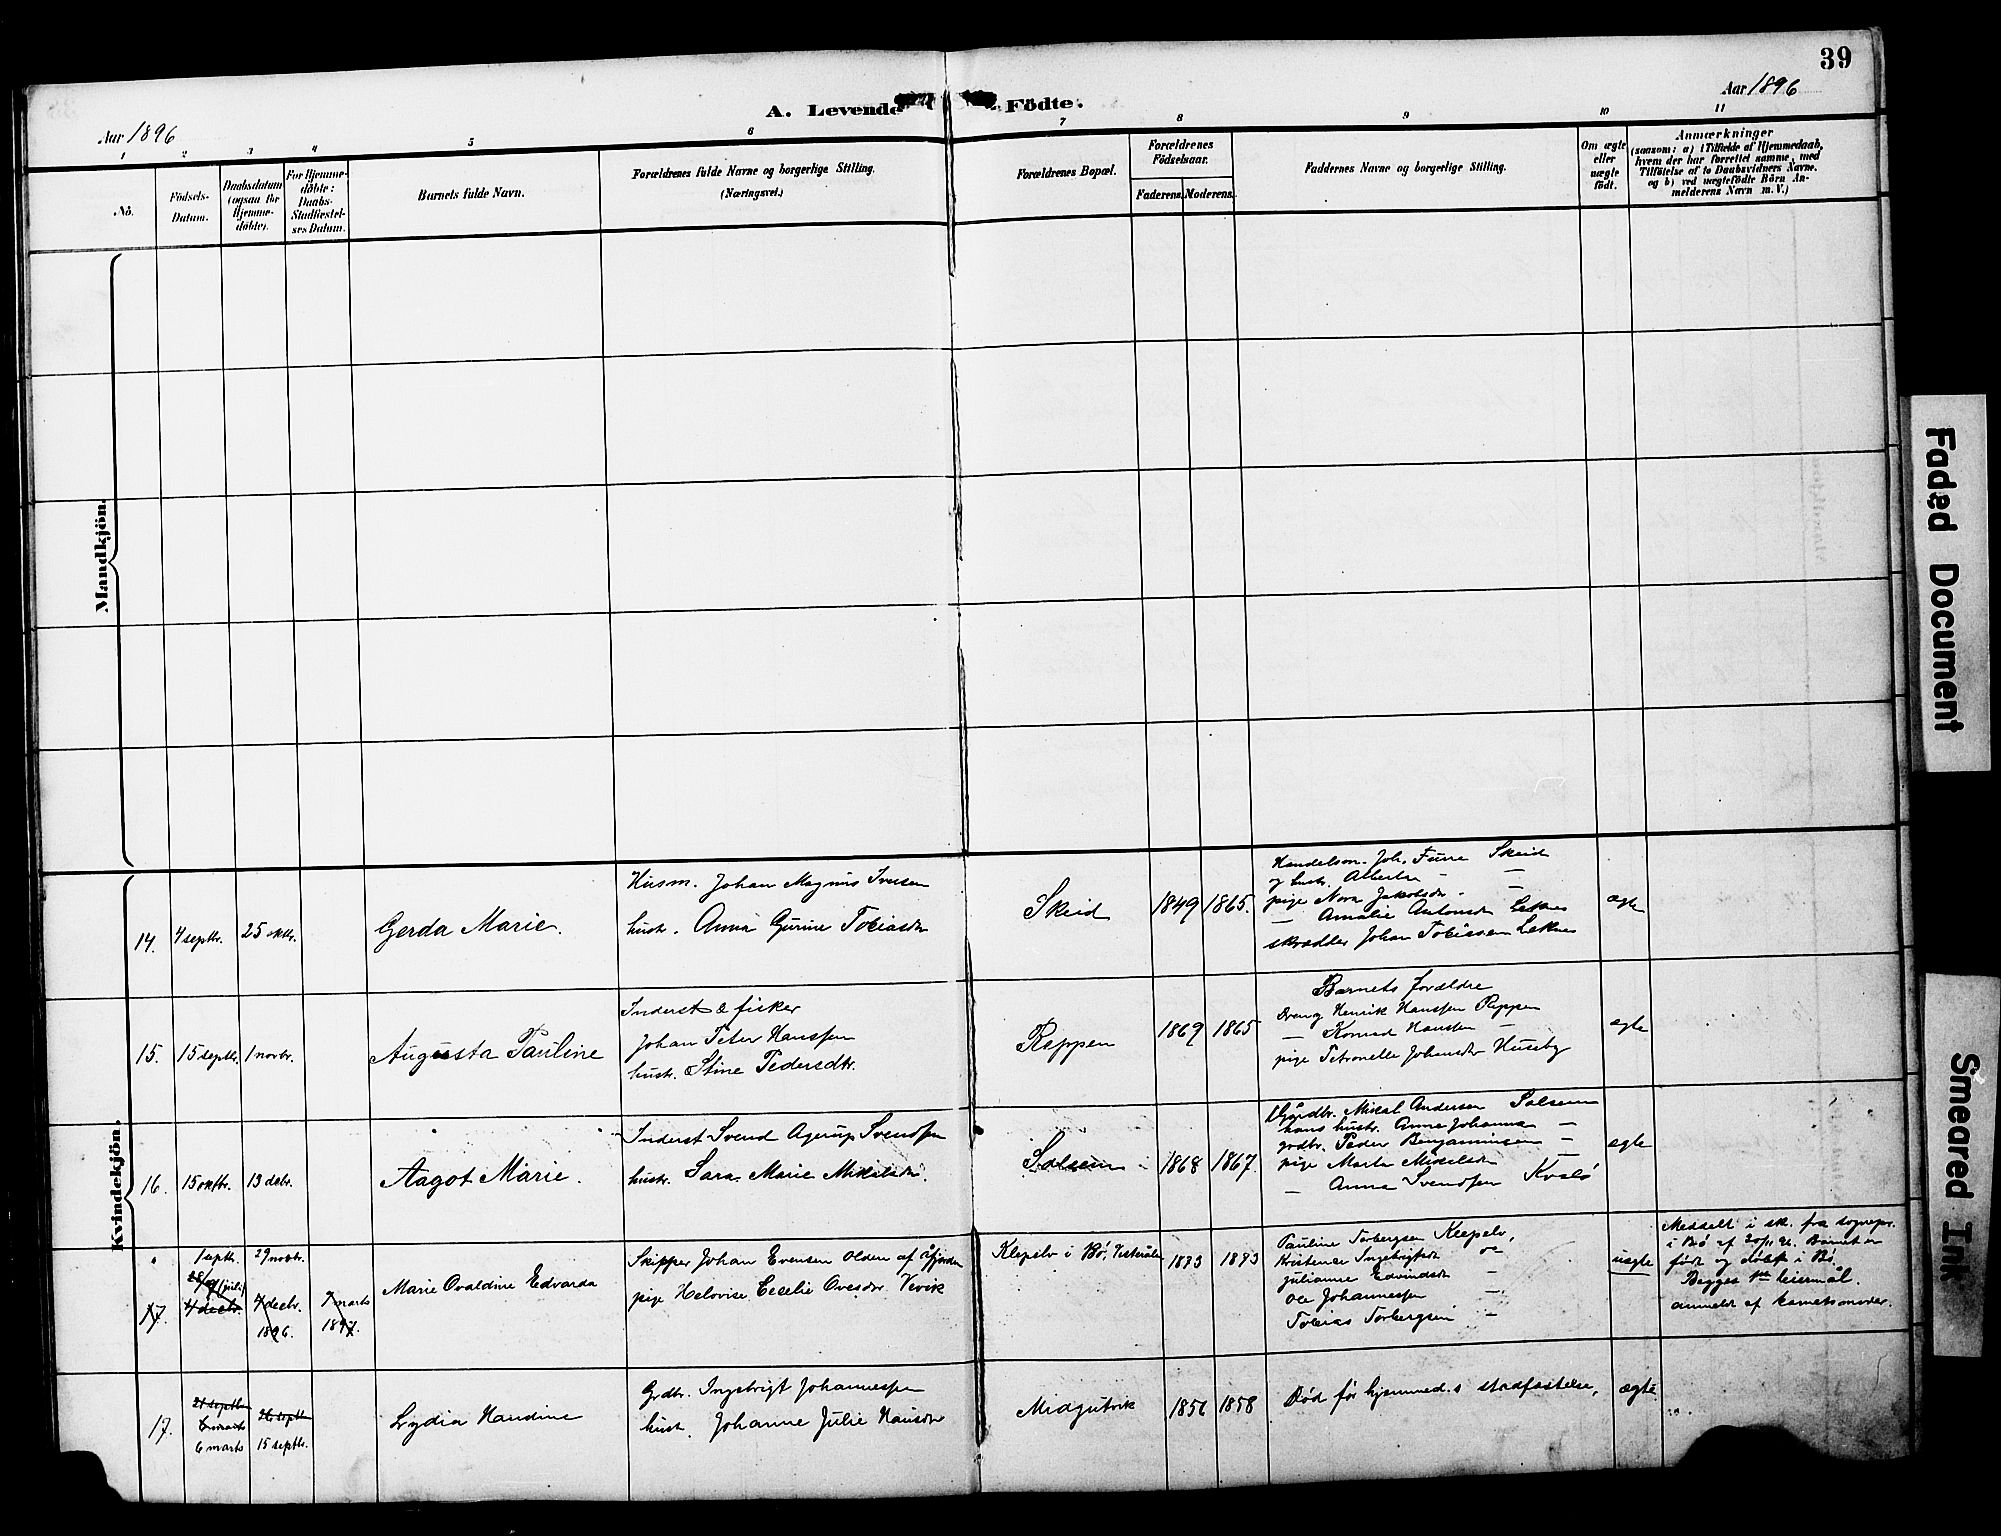 39
A. Levende Födte.
Aar 1896
Aar 1896
1 2 3 4 5 6 7 8 9 10 11
No.
Födsels-
Datum.
Daabsdatum
(ogsaa for
Hjemme-
døbte).
For Hjemme-
døbte:
Daabs-
Stadfæstel-
ses Datum.
Barnets fulde Navn.
Forældrenes fulde Navne og borgerlige Stilling.
(Næringsvei.)
Forældrenes Bopæl.
Forældrenes
Födselsaar.
Faderens.
Moderens.
Faddernes Navne og borgerlige Stilling.
Om ægte
eller
uægte
født.
Anmærkninger
(saasom: a) i Tilfælde af Hjemmedaab,
hvem der har forrettet samme, med
Tilföielse af to Daabsvidners Navne.
og b) ved uægtefödte Börn An-
melderens Navn m.V.)
Mandkjön.
Kvindekjön.
14. 4 septbr. 25 oktbr.
Gerda Marie.
Husm. Johan Magnus Iversen
hustr. Anna Gurine Tobiasdr
Skeid
1849 1865.
Handelsm. Joh. Furre Skeid
og hustr. Albertha - —
pige Nora Jakobsdr - —
— Amalie Antonsdr Leknes
skrædder Johan Tobiassen Leknes
ægte
15. 15 septbr. 1 novbr.
Augusta Pauline
Inderst & fisker
Johan Peter Hanssen
hustr. Stine Pedersdtr.
Reppen
1869 1865
Barnets forældre
Dreng Henrik Hanssen Reppen
— Konrad Hanssen —
pige Petronelle Johansdr Huseby
ægte
16. 15 oktbr. 13 decbr.
Aagot Marie.
Inderst Svend Agerup Svendsen
hustr. Sara Marie Mikalsdr.
Solsem
1868 1867
Gårdbr. Mikal Andersen Solsem
hans hustr. Anne Johanna —
grdbr. Peder Benjaminsen —
pige Marta Mikelsdr
— Anna Svendsen Kvalø
ægte
17. 1 septbr. 29 novbr.
28/9 (juli)
4 decbr. 4 decbr. 7 marts
1896. 1897.
Marie Ovaldine Edvarda
Skipper Johan Evensen Olden af Åfjorden
pige Helovise Cecelie Ovesdr Vevik
Klepelv i Bø, Vesterålen
1873 1873
Pauline Torbergsen Klepelv,
Kristense Ingebrigtsdr do
Julianne Edvindsdr —
Ole Johannessen —
Tobias Torbergsen —
uægte
Meddelt i sk. fra sognepr.
i Bø af 20/12 96. Barnet er
født og døbt i Bø.
Begges 1ste leiermål.
anmeldt af barnets moder.
17. 21 septbr 26 septbr
6 marts
6 marts 15 septbr.
Lydia Handine
Grdbr. Ingebrigt Johannessen
hust. Johanne Julie Hansdr
Midgutvik
1856 1858
Død før hjemmed.s stadfæstelse.
ægte
Faded Document
Smeared Ink